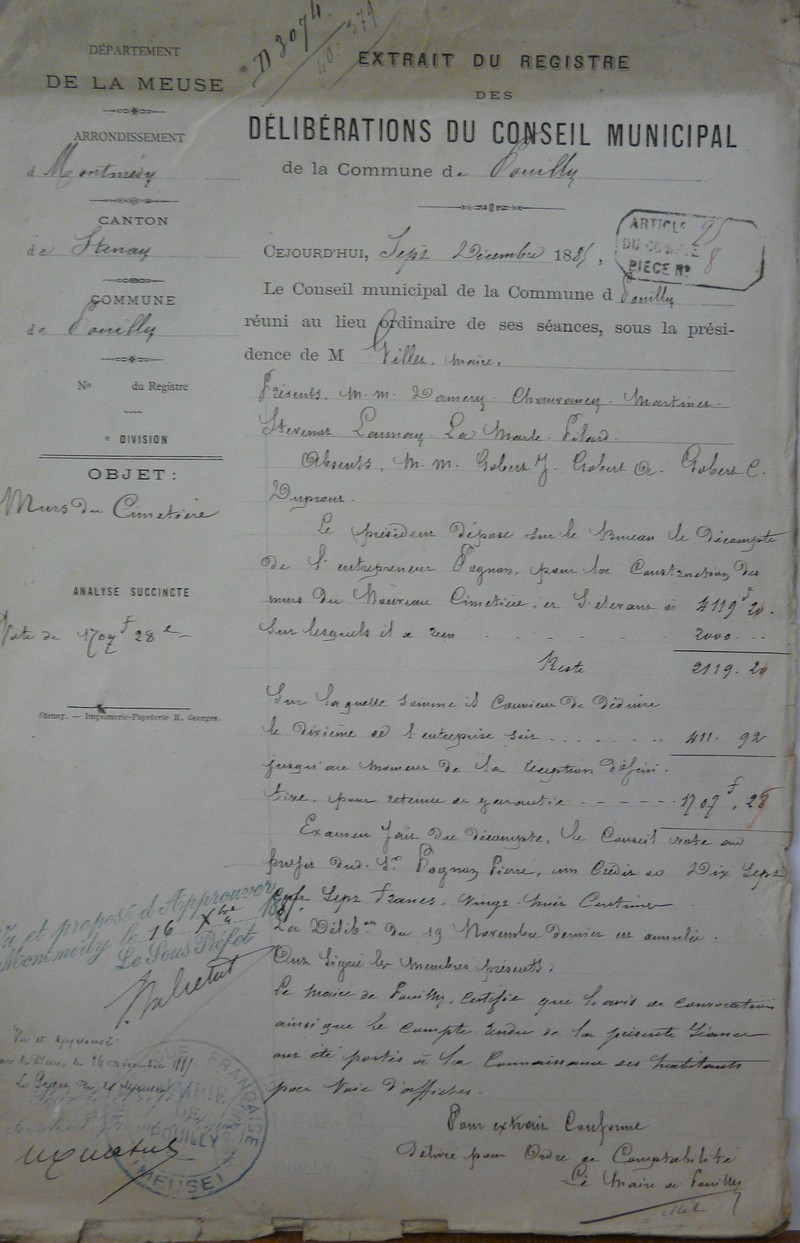 D 3074
40-379
DÉPARTEMENT
DE LA MEUSE
ARRONDISSEMENT
d Montmédy
CANTON
de Stenay
COMMUNE
de Pouilly
No du Registre
e DIVISION
OBJET :
Murs du Cimetière
ANALYSE SUCCINCTE
Vote de 1707 f 28 c
Stenay. — Imprimerie-Papeterie H. Georges.
EXTRAIT DU REGISTRE
DES
DÉLIBÉRATIONS DU CONSEIL MUNICIPAL
de la Commune de Pouilly
ARTICLE 95
DU COMPTE
PIECE No 8
CEJOURD'HUI, Sept Décembre 1885,
Le Conseil municipal de la Commune d Pouilly
réuni au lieu ordinaire de ses séances, sous la prési-
dence de M Villet, maire,
Présents, M. M. Damery Chauvancy Martinet
Stevenot Launay La Marle Pilard.
Absents, M. M. Gobert J. Gobert Gobert C.
Le président dépose sur le Bureau le Décompte
de l'entrepreneur Pognon, pour la Construction des
murs du Nouveau Cimetière, et s'élevant à 4119 f 20.
Sur lesquels il a reçu 2000 ..
Reste 2119. 20
Sur laquelle somme il convient de Déduire
le dixième de l'entreprise soit 411. 92
jusqu'au moment de la réception défini-
tive, pour retenue de garantie 1707 f, 28
Examen fait du décompte, le Conseil vote au
profit dud. Sr Pognon Pierre, un Crédit de Dix Sept
Cent Sept Francs, vingt huit Centimes
La Délibon du 19 Novembre Dernier est annulée.
Ont signé les membres présents.
Le Maire de Pouilly, Certifie que l'avis de convocation
ainsi que le Compte rendu de la présente Séance
ont été portés à la Connaissance des habitants
par Voie d'affiches.
Pour extrait Conforme
Délivré pour Ordre de Comptabilité
Le Maire de Pouilly
Villet
Vu et proposé d'Approuver
Montmédy le 16 Xbre 188
Le Sous Préfet
Vu et approuvé
Bar le Duc, le 26 Décembre 1885
MAIRIE DE POUILLY
(MEUSE)